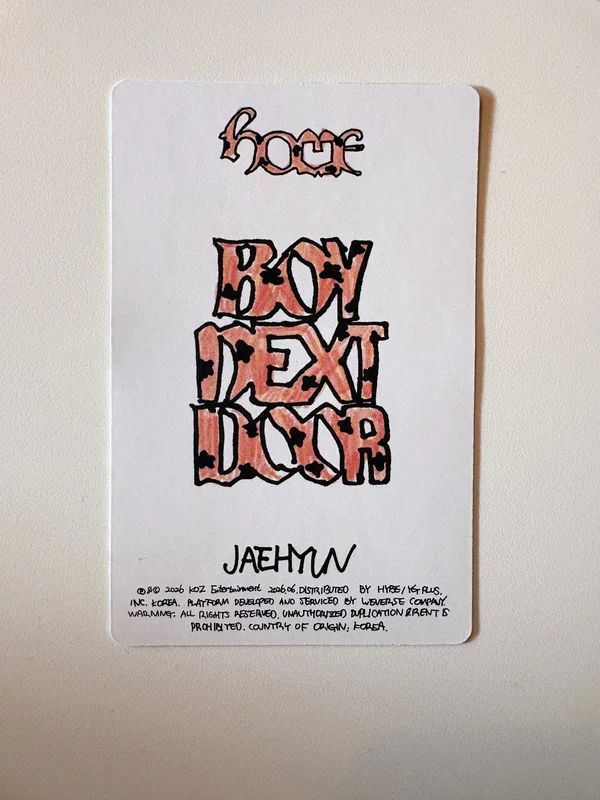 home
BOY
NEXT
DOOR
JAEHYUN
℗&© 2026 KOZ Entertainment 2026.06. DISTRIBUTED BY HYBE/YG PLUS.
INC. KOREA. PLATFORM DEVELOPED AND SERVICED BY WEVERSE COMPANY.
WARNING. ALL RIGHTS RESERVED. UNAUTHORIZED DUPLICATION & RENT IS
PROHIBITED. COUNTRY OF ORIGIN: KOREA.